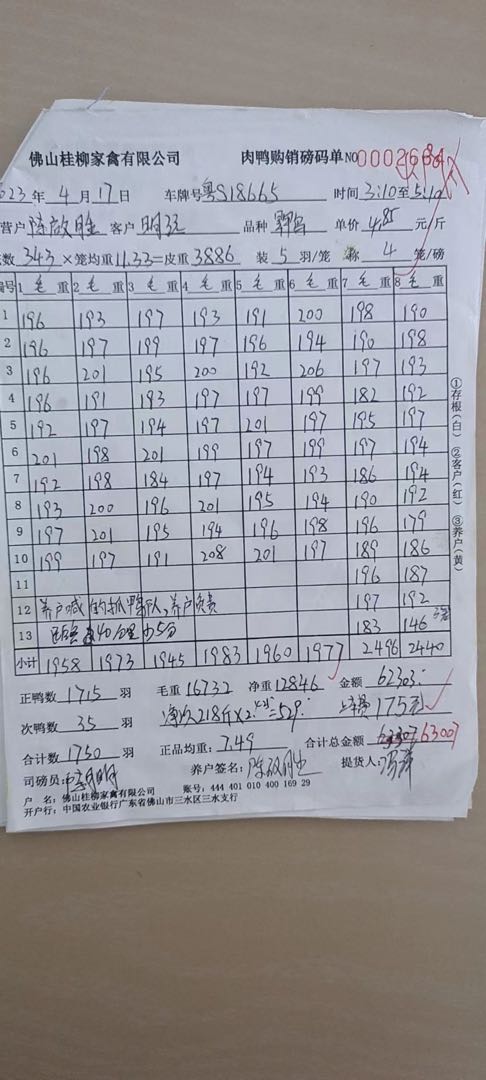 佛山桂柳家禽有限公司 肉鸭购销磅码单 NO 0002664
023 年 4 月 17 日 车牌号 粤S18665 时间 3:10 至 5:10
营户 陈啟胜 客户 明强 品种 单价 4.85 元/斤
总数 343 ×笼均重 11.33=皮重 3886 装 5 羽/笼 称 4 笼/磅
编号 1 毛 重 2 毛 重 3 毛 重 4 毛 重 5 毛 重 6 毛 重 7 毛 重 8 毛 重
1 196 193 197 193 191 200 198 190
2 196 197 199 197 196 194 190 198
3 196 201 195 200 192 206 197 193
4 196 191 193 197 197 199 182 192
5 192 197 194 197 201 197 195 197
6 201 198 201 199 197 199 197 194
7 192 198 184 197 194 193 186 194
8 193 200 196 201 195 194 190 192
9 197 201 195 194 196 198 196 179
10 199 197 191 208 201 197 189 186
11 196 187
12 养户喊的抓鸭队,养户负责 197 192
13 40公里 5分 183 146
小计 1958 1973 1945 1983 1960 1977 2496 2440
①存根(白) ②客户(红) ③养户(黄)
正鸭数 1715 羽 毛重 16732 净重 12846 金额 62303.-
次鸭数 35 羽 净次218斤×2. =529.- 175元
合计数 1750 羽 正品均重: 7.49 合计总金额 63007
司磅员: 养户签名: 陈啟胜 提货人:
户 名: 佛山桂柳家禽有限公司 账号: 444 401 010 400 169 29
开户行: 中国农业银行广东省佛山市三水区三水支行